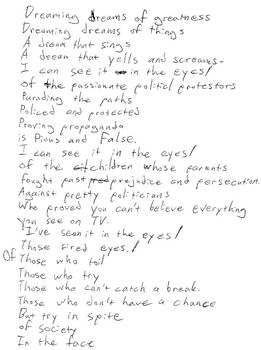 Dreaming dreams of greatness
Dreaming dreams of things
A dream that sings
A dream that yells and screams-
I can see it in the eyes/
of the passionate political protestors
Parading the paths
Policed and protected
Proving propaganda
is Pious and False.
I can see it in the eyes/
of the children whose parents
fought past prejudice and persecution.
Against pretty politicians
Who proved you can't believe everything
you see on TV.
I've seen it in the eyes/
Those tired eyes./
Of Those who toil
Those who try
Those who can't catch a break.
Those who don't have a chance
But try in spite
of society
In the face